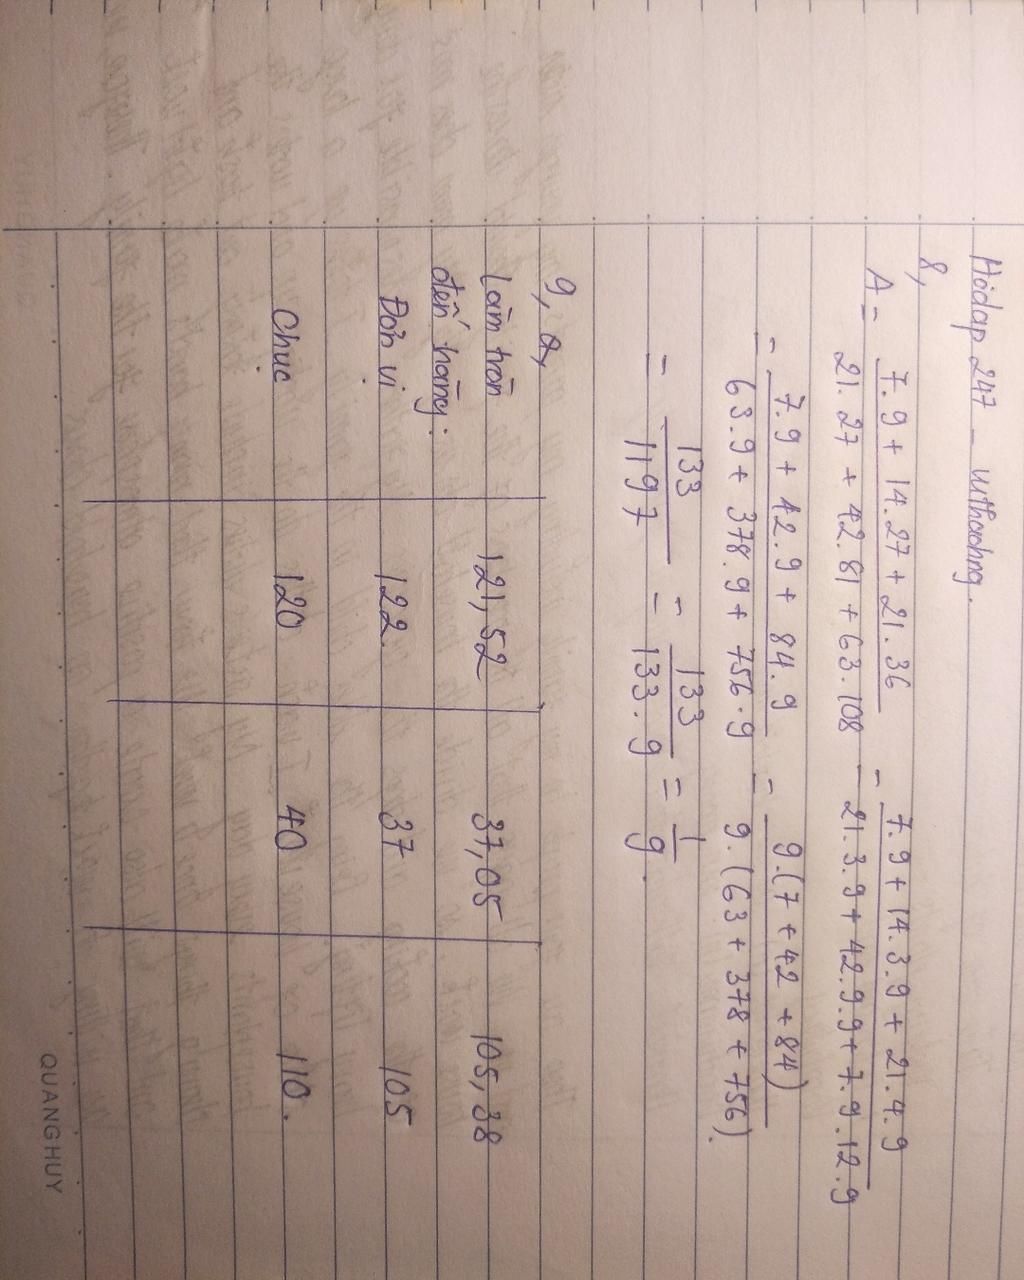 Hoidap 247 - withaohng.
8,
A = \frac{7.9 + 14.27 + 21.36}{21.27 + 42.81 + 63.108} = \frac{7.9 + 14.3.9 + 21.4.9}{21.3.9 + 42.9.9 + 7.9.12.9}
= \frac{7.9 + 42.9 + 84.9}{63.9 + 378.9 + 756.9} = \frac{9.(7 + 42 + 84)}{9.(63 + 378 + 756)}.
= \frac{133}{1197} = \frac{133}{133.9} = \frac{1}{9}.
9, a,
Làm tròn 121,52 37,05 105,38
đến hàng:
Đơn vị 122. 37 105
Chục 120 40 110.
QUANGHUY